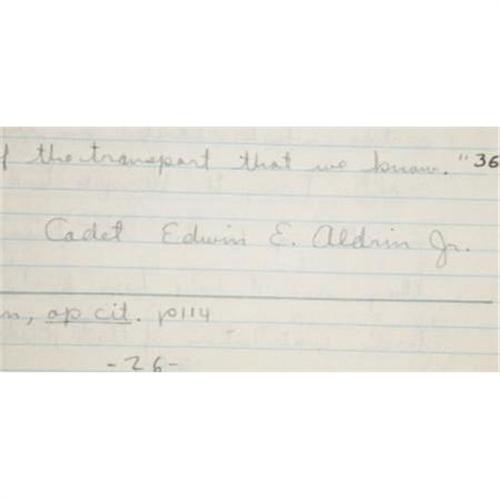 the transport that we know." 36
Cadet Edwin E. Aldrin Jr.
op cit. p114
-26-